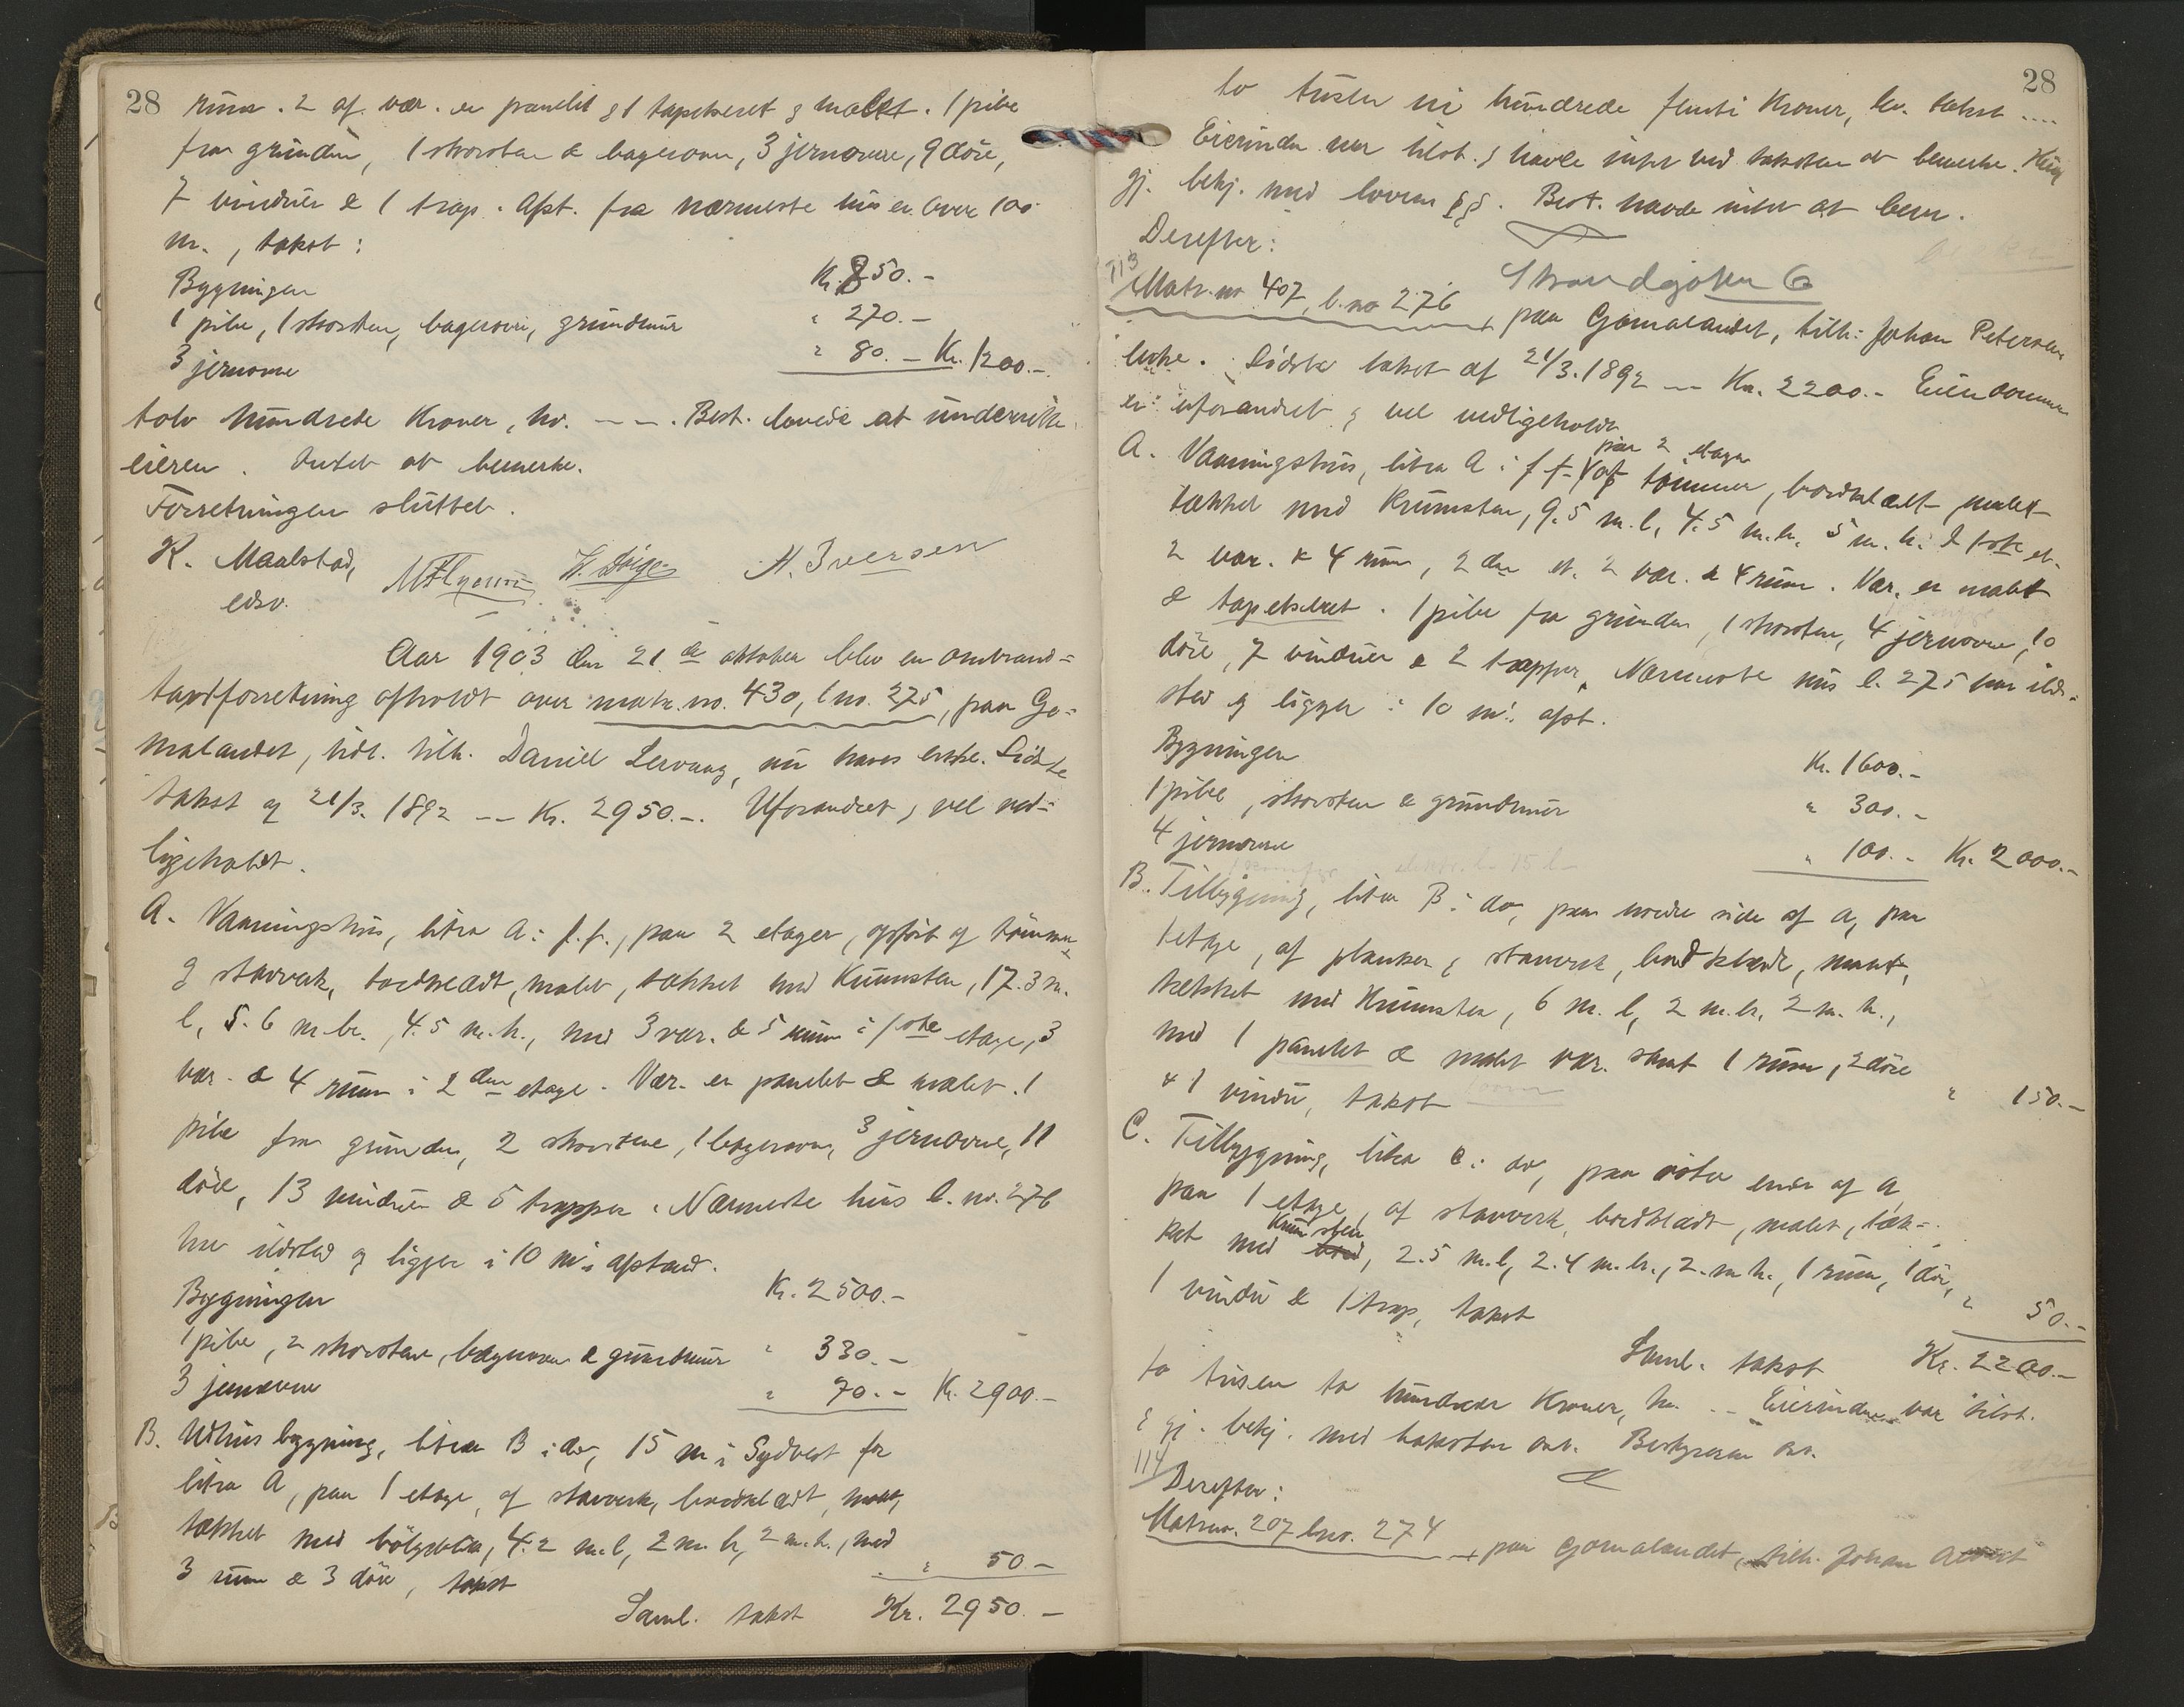 28
rum. 2 af vær. er panelet & 1 tapetseret & malet. 1 pibe
fra grunden, 1 skorsten & bagerovn, 3 jernovne, 9 döre,
7 vinduer & 1 trap. Afst. fra nærmeste hus er over 100
m., takst:
Bygningen Kr. 850.-
1 pibe, 1 skorsten, bagerovn, grundmur " 270.-
3 jernovne " 80.- Kr. 1200.-
tolv hundrede Kroner, hv. --. Best. lovede at underrette
eieren. Intet at bemerke.
Forretningen sluttet.
K. Maalstad, H. Iversen
edsv.
Aar 1903 den 21de oktober blev en ombrand=
taxtforretning afholdt over matr. no. 430, l no. 275, paa Go=
malandet, tidl. tilh. Daniel Lervaag, nu hans enke. Sidste
takst af 21/3. 1892 -- Kr. 2950.-. Uforandret & vel ved=
ligeholdt.
A. Vaaningshus, litra A: f. f., paa 2 etager, opfört af tömmer
& stavverk, bordklædt, malet, tækket med Krumsten, 17.3 m.
l, 5.6 m. br., 4.5 m. h., med 3 vær. & 5 rum i 1ste etage, 3
vær. & 4 rum i 2den etage. Vær. er panelet & malet. 1
pibe fra grunden, 2 skorstene, 1 bagerovn, 3 jernovne, 11
döre, 13 vinduer & 5 trapper. Nærmeste hus l. no. 276
har ildsted og ligger i 10 m's afstand.
Bygningen Kr. 2500.-
1 pibe, 2 skorstene, bagerovn & grundmur " 330.-
3 jernovne " 70.- Kr. 2900.-
B. Udhusbygning, litra B: do, 15 m i Sydvest for
litra A, paa 1 etage, af stavverk, bordklædt, malet,
tækket med bölgeblik, 4.2 m. l, 2 m. b, 2 m. h., med
3 rum & 3 döre, takst " 50.-
Saml. takst Kr. 2950.-
28
to tusen ni hundrede femti Kroner, hv. takst ....
Eierinden var tilst. & havde intet ved taksten at bemerke. Hun
gj. bekj. med lovens §§. Best. havde intet at bem.
Derefter:
113 Strandgaten 6
Matr. no 407, l. no 276 paa Gomalandet, tilh: Johan Petersens
enke. Sidste takst af 21/3. 1892 -- Kr. 2200.- Eiendommen
er uforandret & vel vedligeholdt
paa 2 etager
A. Vaaningshus, litra A: f. f. af tömmer, bordklædt malet
tækket med Krumsten, 9.5 m. l, 4.5 m. br. 5 m. h. I 1ste et.
2 vær. & 4 rum, 2den et. 2 vær. & 4 rum. Vær. er malet
& tapetseret. 1 pibe fra grunden, 1 skorsten, 4 jernovne, 10
döre, 7 vinduer & 2 trapper. Nærmeste hus l. 275 har ild=
sted og ligger i 10 m's afst.
Bygningen Kr. 1600.-
1 pibe, skorsten & grundmur " 300.-
4 jernovne " 100.- Kr. 2000.-
B. Tilbygning, litra B: do, paa nordre side af A, paa
1 etage, af planker & stavverk, bordklædt, malet,
tækket med Krumsten, 6 m. l, 2 m. br, 2 m. h.,
med 1 panelet & malet vær. samt 1 rum, 2 döre
& 1 vindu, takst " 150.-
C. Tilbygning, litra C: do, paa östre ende af A
paa 1 etage, af stavverk, bordklædt, malet, tæk=
Krumsten
ket med 2.5 m. l, 2.4 m. br., 2. m h., 1 rum, 1 dör,
1 vindu & 1 trap, takst " 50.-
Saml. takst Kr. 2200.-
to tusen to hundrede Kroner, hv. -- Eierinden var tilst.
& gj. bekj. med taksten osv. Bestyreren osv.
114
Derefter:
Matr no. 207 l no. 274 paa Gomalandet, tilh. Johan